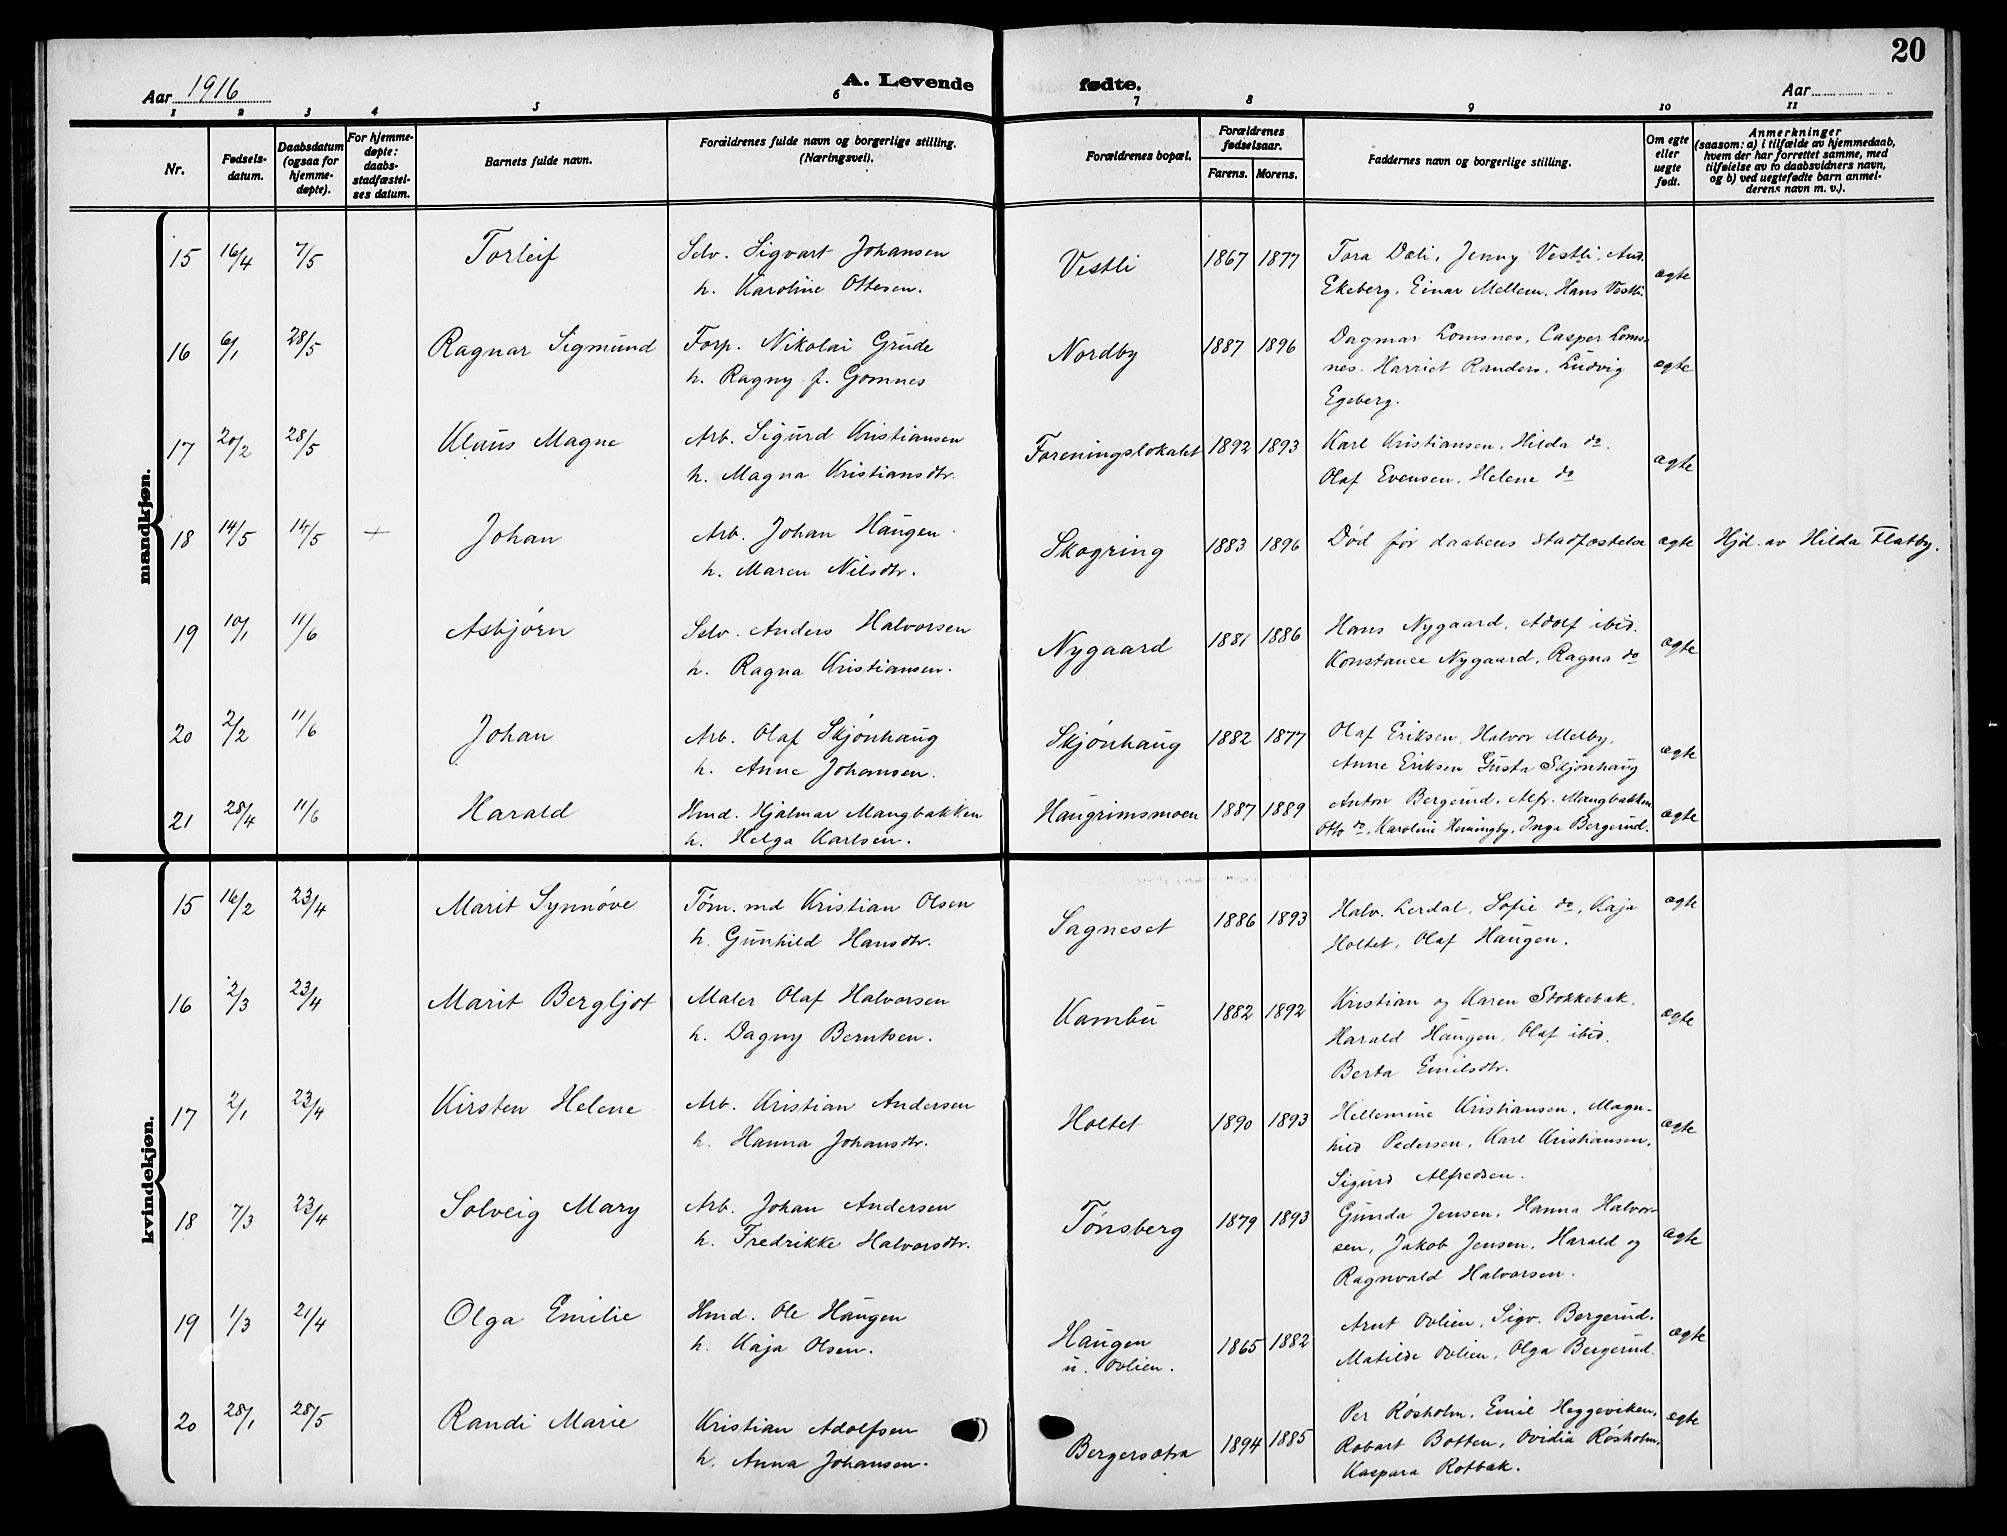 20
A. Levende fødte.
Aar 1916
Aar
1 2 3 4 5 6 7 8 9 10 11
Nr.
Fødsels-
datum.
Daabsdatum
(ogsaa for
hjemme-
døpte).
For hjemme-
døpte:
daabs-
stadfæstel-
ses datum.
Barnets fulde navn.
Forældrenes fulde navn og borgerlige stilling.
(Næringsvei).
Forældrenes bopæl.
Forældrenes
fødselsaar.
Farens. Morens.
Faddernes navn og borgerlige stilling.
Om egte
eller
uegte
født.
Anmerkninger
(saasom: a) i tilfælde av hjemmedaab,
hvem der har forrettet samme, med
tilføielse av to daabsvidners navn,
og b) ved uegtefødte barn anmel-
derens navn m. v.).
mandkjøn.
15 16/4 7/5 Torleif Selv. Sigvart Johansen Vestli 1867 1877 Tora Dæli, Jenny Vestli, And.
h. Karoline Ottesen. Ekeberg, Einar Mellem, Hans Vestli. ægte
16 6/1 28/5 Ragnar Sigmund Forp. Nikolai Grude Nordby 1887 1896 Dagmar Lomsnes, Casper Loms-
h. Ragny f. Gomnes nes. Harriet Randers, Ludvig ægte
Egeberg.
17 20/2 28/5 Klaus Magne Arb. Sigurd Kristiansen Foreningslokalet 1892 1893 Karl Kristiansen, Hilda do.
h. Magna Kristiansdtr. Olaf Evensen, Helene do ægte
18 14/5 14/5 + Johan Arb. Johan Haugen Skogring 1883 1896 Død før daabens stadfæstelse ægte Hjd. av Hilda Flatby.
h. Maren Nilsdtr.
19 10/1 11/6 Asbjørn Selv. Anders Halvorsen Nygaard 1881 1886 Hans Nygaard, Adolf ibid.
h. Ragna Kristiansen. Konstance Nygaard, Ragna do ægte
20 2/2 11/6 Johan Arb. Olaf Skjønhaug Skjønhaug 1882 1877 Olaf Eriksen, Halvor Melby,
h. Anne Johansen. Anne Eriksen, Gusta Skjønhaug ægte
21 28/4 11/6 Harald Hmd. Hjalmar Mangbakken Haugrimsmoen 1887 1889 Anton Bergerud, Alfr. Mangbakken
h. Helga Karlsen. Otto do, Karoline Henningby, Inga Bergerud. ægte
kvindekjøn.
15 16/2 23/4 Marit Synnøve Tøm.md Kristian Olsen Sagneset 1886 1893 Halv. Lerdal, Sofie do, Kaja ægte
h. Gunhild Hansdtr. Holtet, Olaf Haugen.
16 2/3 23/4 Marit Bergljot Maler Olaf Halvorsen Kambu 1882 1892 Kristian og Karen Stokkebæk,
h. Dagny Berntsen. Harald Haugen, Olaf ibid. ægte
Berta Emilsdtr.
17 2/1 23/4 Kirsten Helene Arb. Kristian Andersen Holtet 1890 1893 Hellemine Kristiansen, Magn-
h. Hanna Johansdtr. hild Pedersen, Karl Kristiansen, ægte
Sigurd Alfredsen.
18 7/3 23/4 Solveig Mary Arb. Johan Andersen Tønsberg 1879 1893 Gunda Jensen, Hanna Halvor-
h. Fredrikke Halvorsdtr. sen, Jakob Jensen, Harald og ægte
Ragnvald Halvorsen.
19 1/3 21/4 Olga Emilie Hmd. Ole Haugen Haugen 1865 1882 Arnt Ovlien, Sigv. Bergerud,
h. Kaja Olsen. u. Ovlien. Matilde Ovlien, Olga Bergerud. ægte
20 28/1 28/5 Randi Marie Kristian Adolfsen Bergersætra 1894 1885 Per Røsholm, Emil Heggeviken, ægte
h. Anna Johansen. Robart Botten, Ovidia Røsholm,
Kaspara Rotbæk.